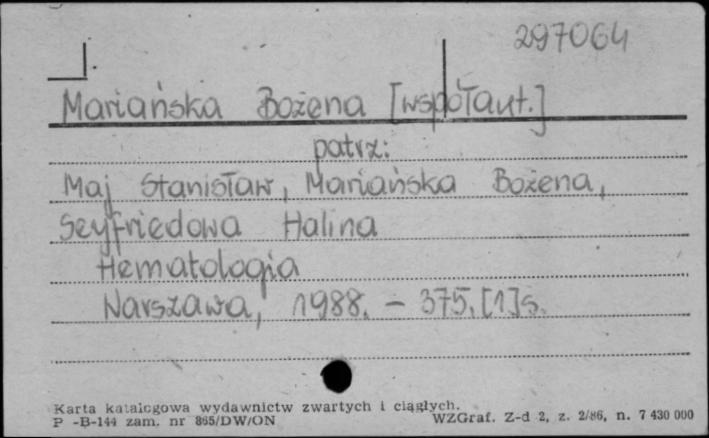 297064
Mariańska Bożena [współaut.]
patrz:
Maj Stanisław, Mariańska Bożena,
Seyfriedowa Halina
Hematologia
Warszawa, 1988. – 375, [1] s.
Karta katalogowa wydawnictw zwartych i ciągłych.
P -B-144 zam. nr 865/DW/ON WZGraf. Z-d 2, z. 2/86, n. 7 430 000